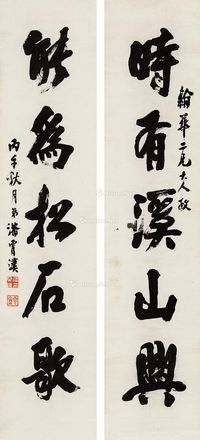 時有溪山興
翰華二兄大人政
能為松石歌
丙午秋月弟潘霄漢